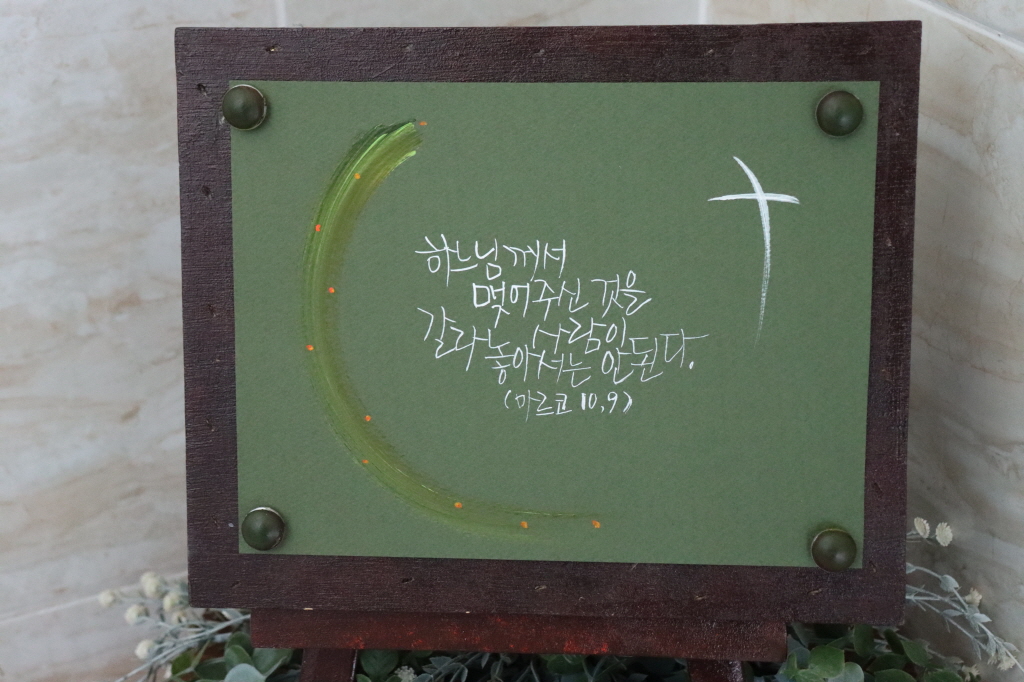 하느님께서
맺어주신 것을
사람이
갈라놓아서는 안된다.
(마르코 10,9)